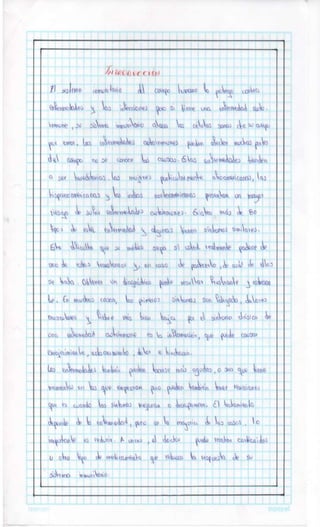 INTRODUCCION
El sistema inmunitario del cuerpo humano lo protege contra
enfermedades y las infecciones pero si tiene una enfermedad auto-
inmune, su sistema inmunitario ataca las células sanas de su cuerpo
por error. Las enfermedades autoinmunes pueden afectar muchas partes
del cuerpo no se conoce las causas. Estas enfermedades tienden
a ser hereditarias. Las mujeres particularmente afroamericanas, las
hispanoamericanas y las indias presentan un mayor
riesgo de sufrir enfermedades autoinmunes. Existen más de 80
tipos de esta enfermedad y algunas tienen síntomas similares.
Esto dificulta que su médico sepa si usted realmente padece de
una de estos trastornos y, en caso de padecerlo, de cuál de ellos
se trata. Obtener un diagnóstico puede resultar frustrante y estresan
te. En muchos casos, los primeros síntomas son fatiga, dolores
musculares y fiebre más bien baja. pero el síntoma clásico de
una enfermedad autoinmune es la inflamación, que puede causar
enrojecimiento, acaloramiento, dolor e hinchazón.
Las enfermedades también pueden tornarse más agudas, o sea que tiene
momentos en los que empeoran, pero pueden también tener remisiones,
que es cuando los síntomas mejoran o desaparecen. El tratamiento
depende de la enfermedad, pero en la mayoría de los casos, lo
importante es reducir. A veces, el doctor puede recetar corticoides
u otro tipo de medicamentos que reduzca la respuesta de su
sistema inmunitario.